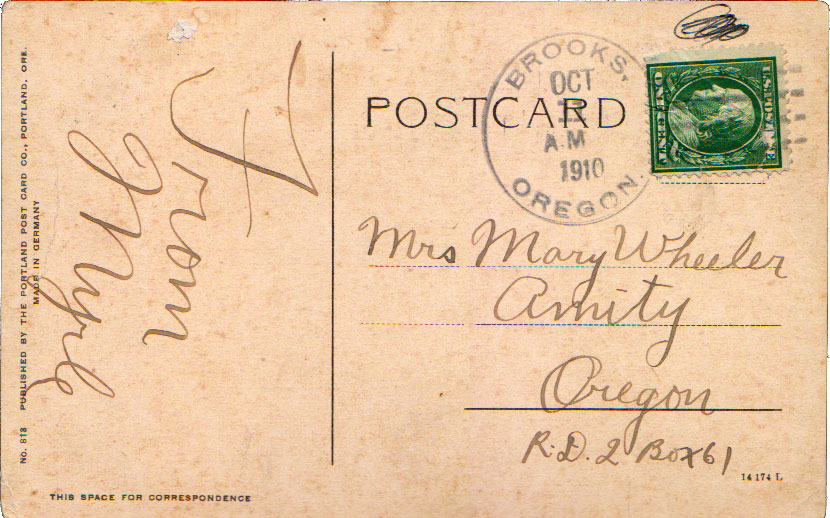 No. 818 PUBLISHED BY THE PORTLAND POST CARD CO., PORTLAND, ORE.
MADE IN GERMANY
From
Myrle
THIS SPACE FOR CORRESPONDENCE
POSTCARD
BROOKS,
OCT
A.M
1910
OREGON.
U.S. POSTAGE
ONE CENT
Mrs Mary Wheeler
Amity
Oregon
R.D. 2 Box 61
14174 L